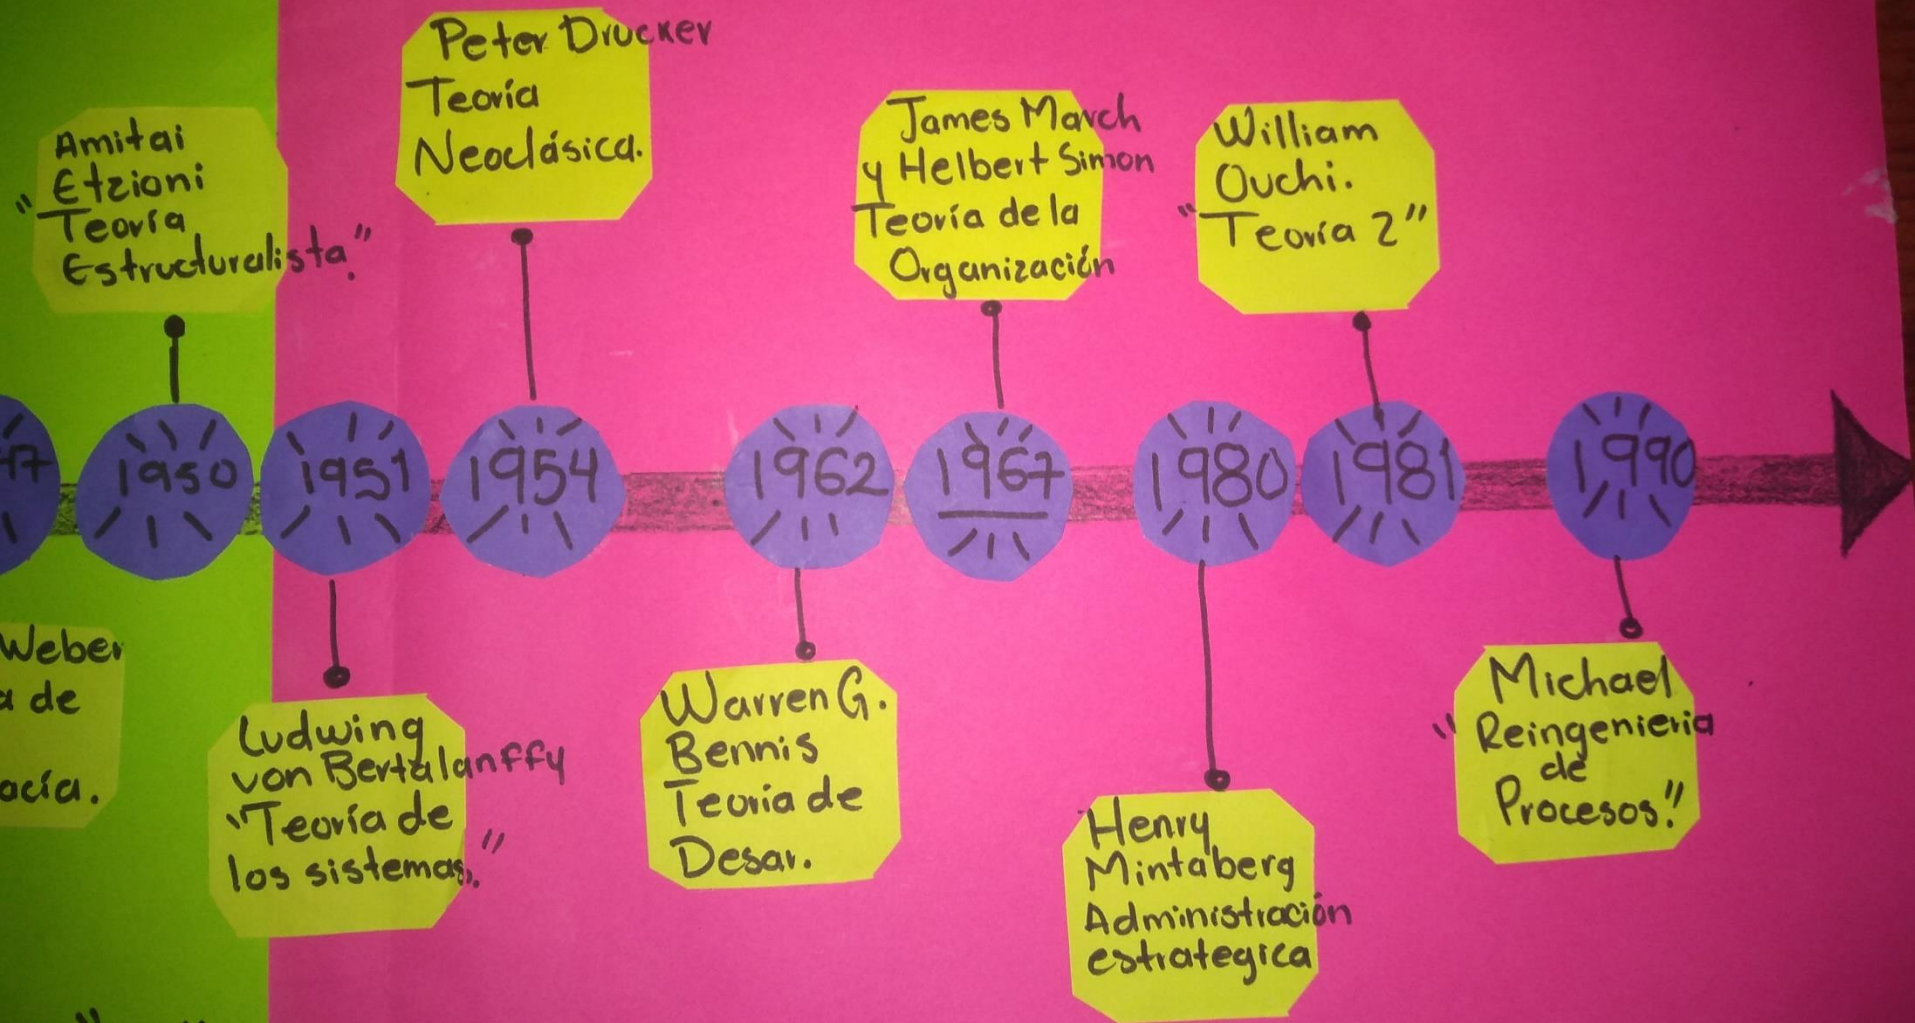 Peter Drucker
Teoría
Neoclásica.
Amitai
Etzioni
"Teoría
Estructuralista."
James March
y Helbert Simon
Teoría de la
Organización
William
Ouchi.
"Teoría Z"
47
1950
1951
1954
1962
1967
1980
1981
1990
Weber
a de
acía.
Ludwing
von Bertalanffy
"Teoría de
los sistemas."
Warren G.
Bennis
Teoria de
Desar.
Henry
Mintaberg
Administración
estrategica
Michael
"Reingenieria
de
Procesos."